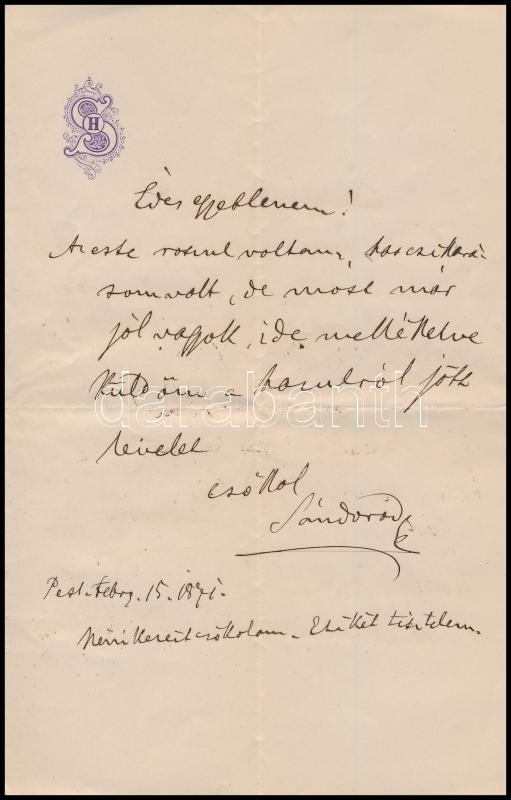 SH
Édes egyetlenem!
Az este rosszul voltam, hascsikará-
som volt, de most már
jól vagyok, ide mellékelve
küldöm a
jött
levelet
csókol
Sándorod
Pest. Febry. 15. 1871.
csókolom. tisztelem.
darabanth